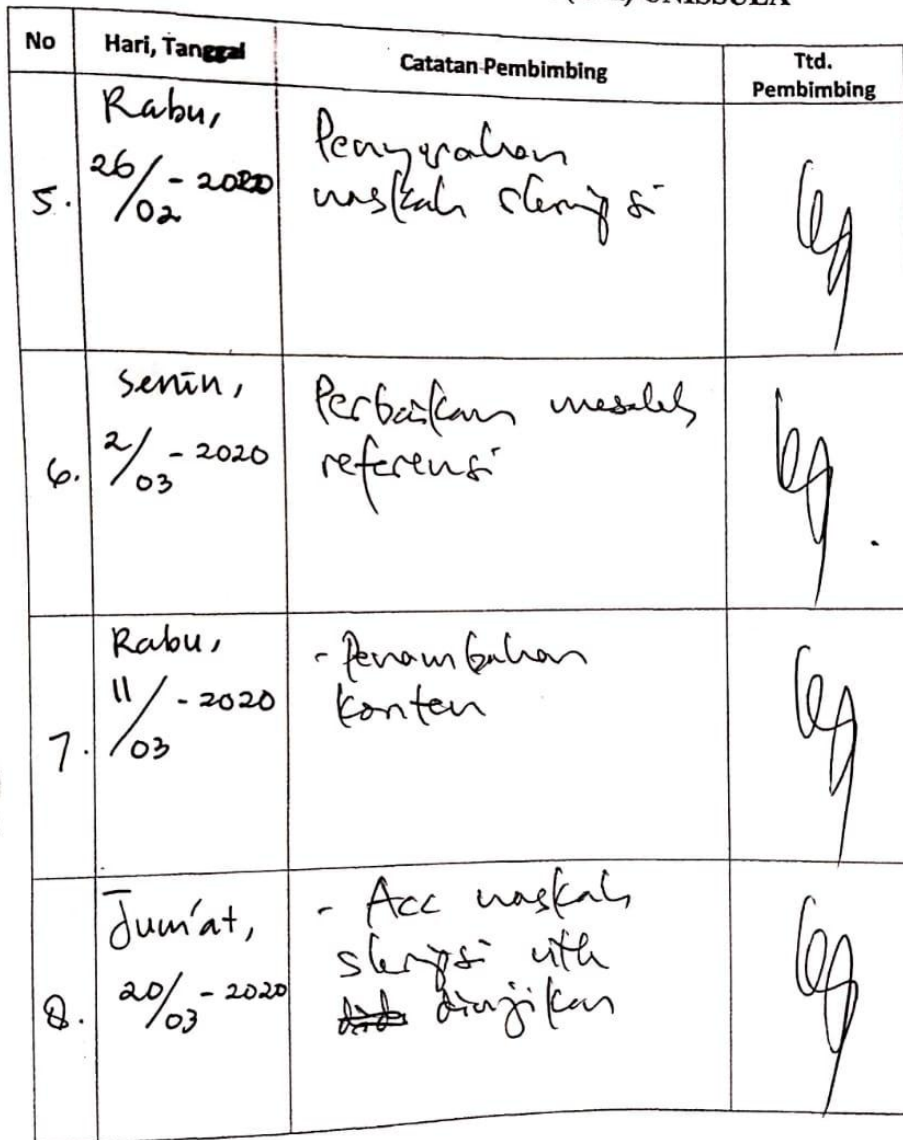 UNISSULA
No Hari, Tanggal Catatan Pembimbing Ttd. Pembimbing
5. Rabu, 26/02 - 2020
Penyerahan
naskah skripsi
6. Senin, 2/03 - 2020
Perbaikan masalah
referensi
7. Rabu, 11/03 - 2020
- Penambahan
konten
8. Jum'at, 20/03 - 2020
- Acc naskah
skripsi utk
diujikan